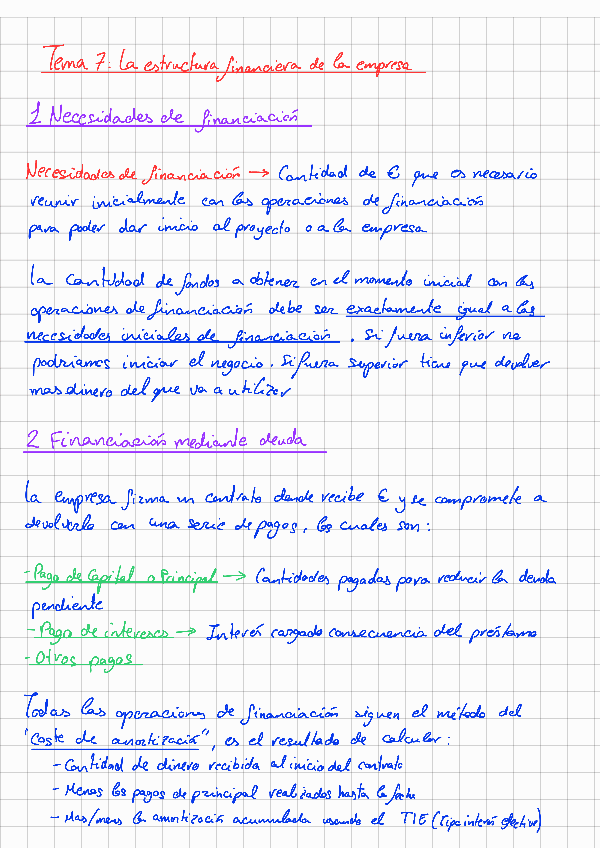 Tema 7: La estructura financiera de la empresa
1 Necesidades de financiación
Necesidades de financiación → Cantidad de € que es necesario
reunir inicialmente con las operaciones de financiación
para poder dar inicio al proyecto o a la empresa
La cantidad de fondos a obtener en el momento inicial con las
operaciones de financiación debe ser exactamente igual a las
necesidades iniciales de financiación. Si fuera inferior no
podríamos iniciar el negocio. Si fuera superior tiene que devolver
mas dinero del que va a utilizar
2 Financiación mediante deuda
La empresa firma un contrato donde recibe € y se compromete a
devolverla con una serie de pagos, los cuales son:
-Pago de Capital o Principal → Cantidades pagadas para reducir la deuda
pendiente
-Pago de intereses → Interés cargado consecuencia del préstamo
-Otros pagos
Todas las operaciones de financiación siguen el método del
"Coste de amortizació", es el resultado de calcular:
- Cantidad de dinero recibida al inicio del contrato
- Menos los pagos de principal realizados hasta la fecha
- Mas/menos la amortización acumulada usando el TIE (Tipo interés efectivo)